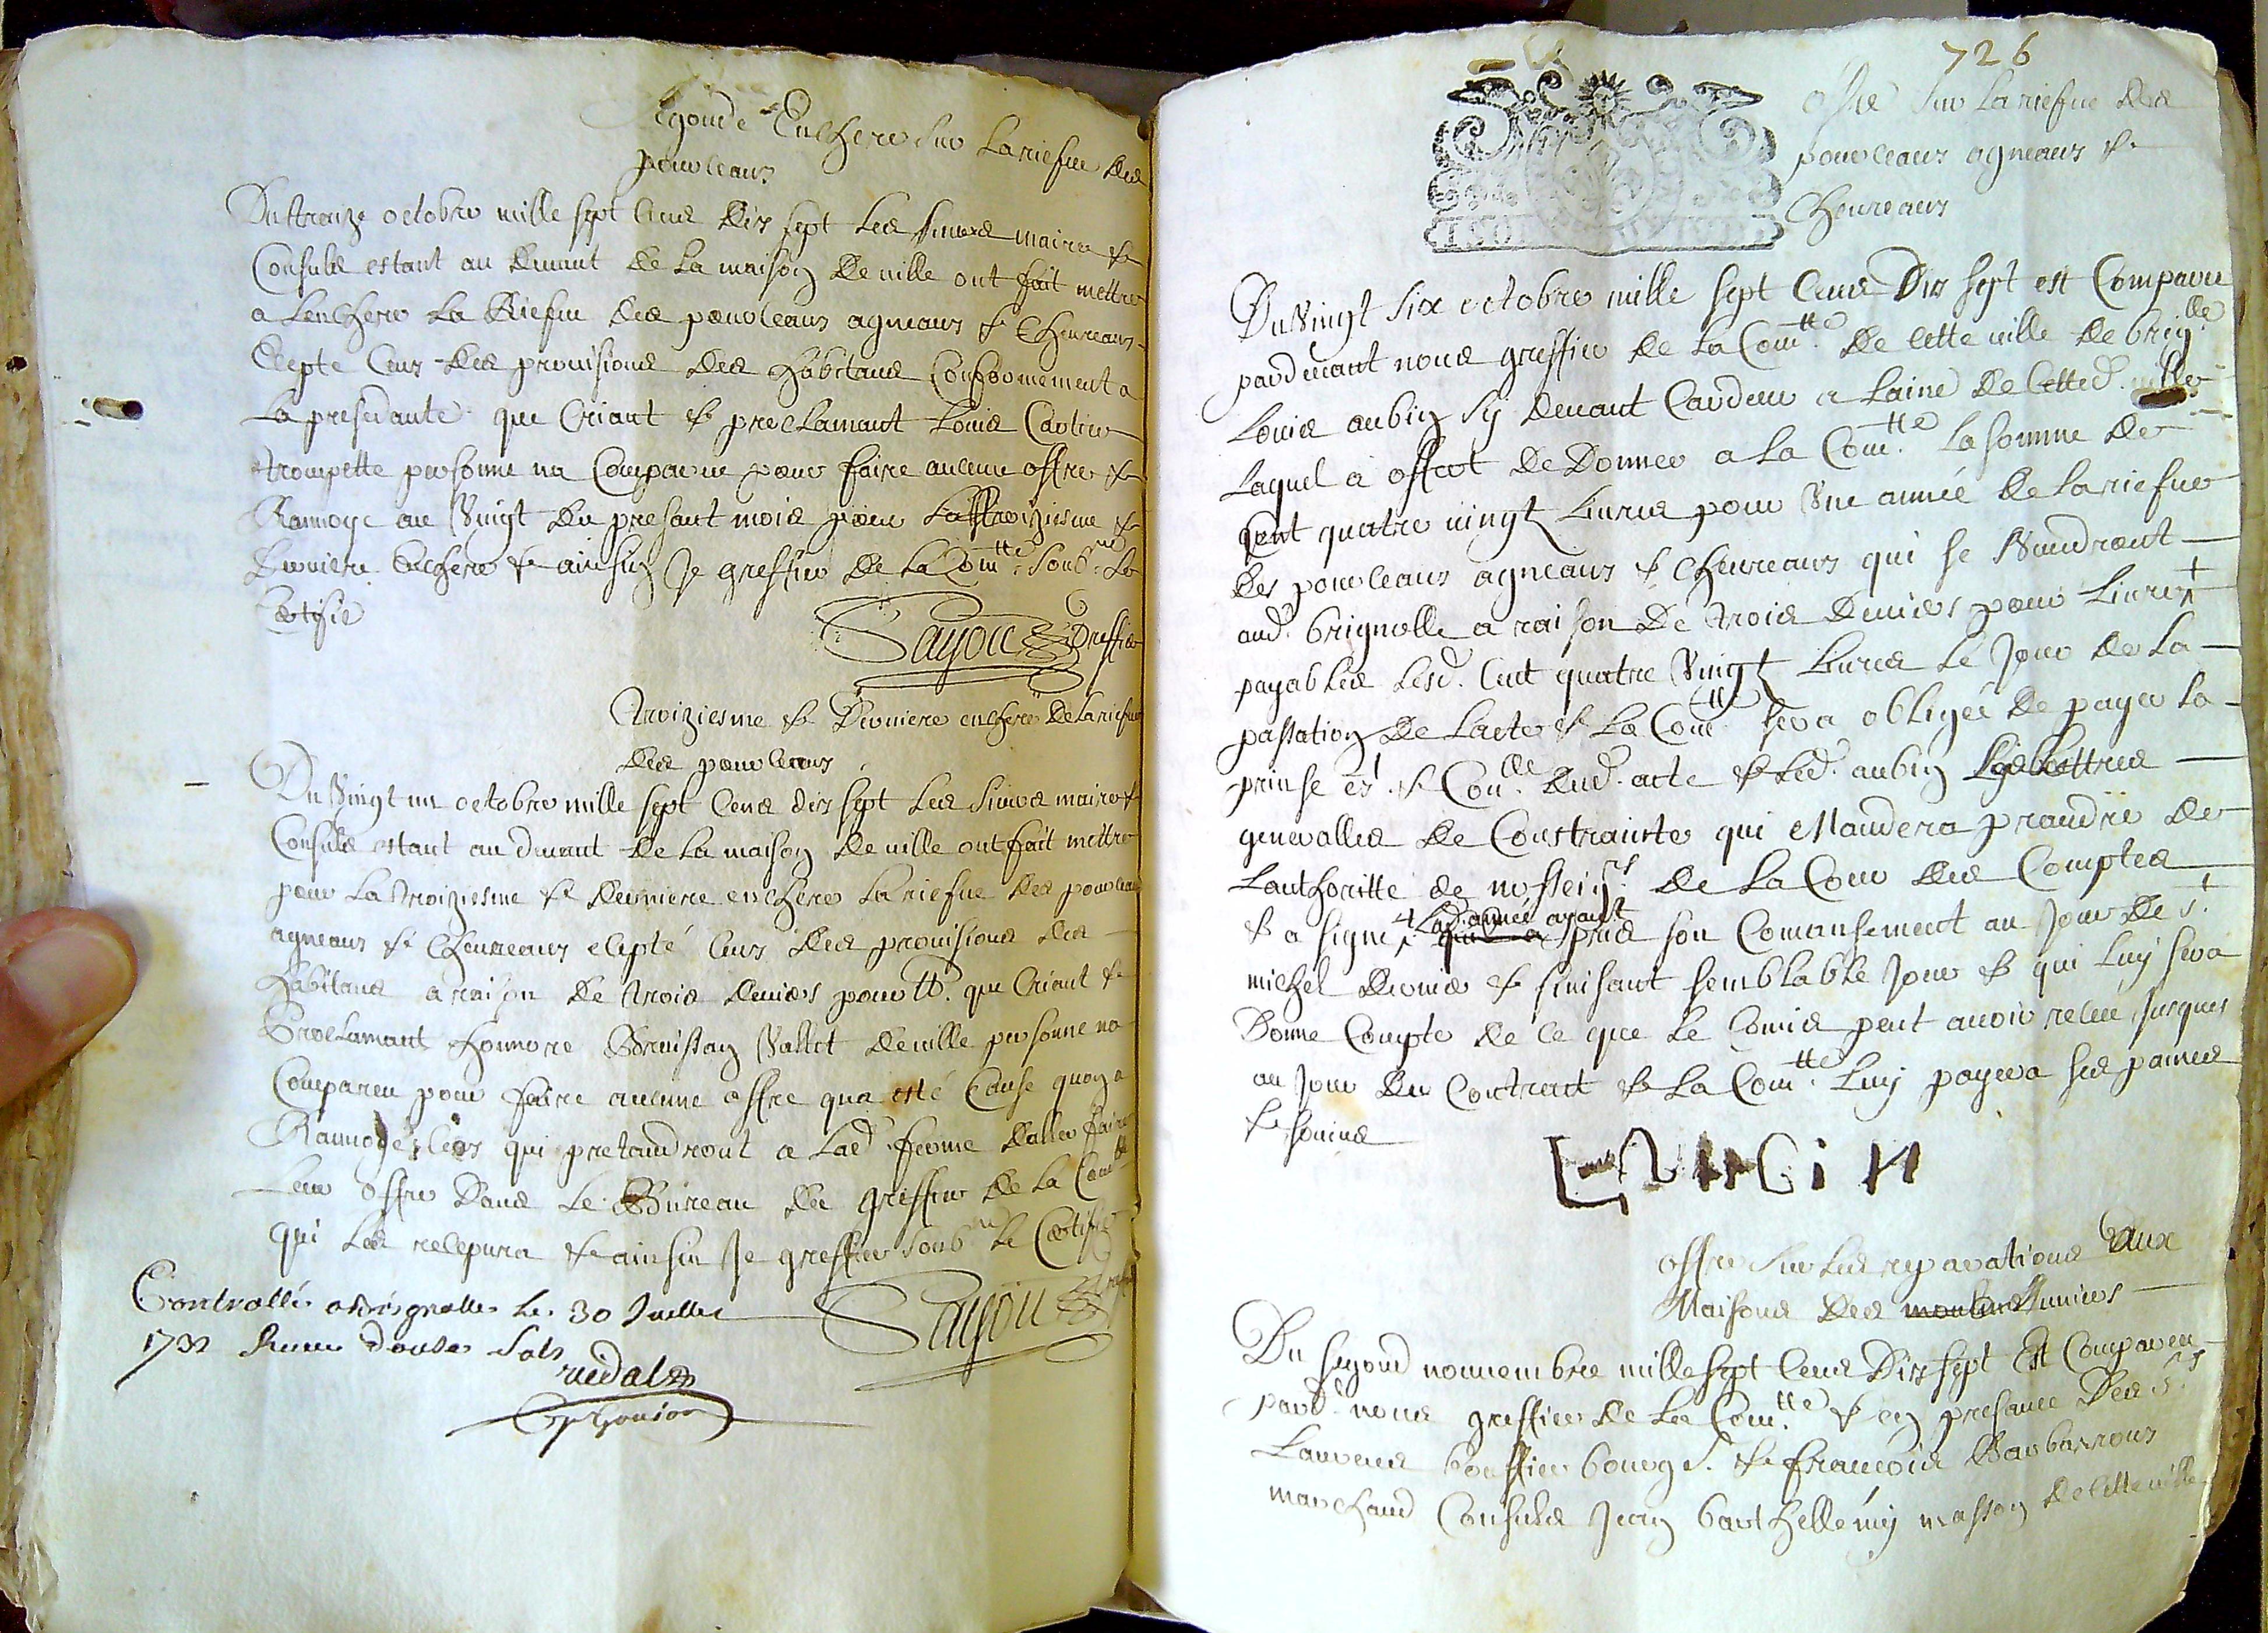 Segonde Enchere sur la riefve des
pourceaux
Du treuze octobre mille sept cens dix sept les sieurs maire &
Consuls estant au devant de la maison de ville ont fait mettre
a lenchere la Riefve des pourceaux agneaux & Chevreaux
Cepte ceux des provisions des habitans Conformement a
la presedante que Criant & proclamant Louis
trompette personne na Compareu pour faire aucune offre &
Ranvoye au vingt du presant mois pour la troiziesme &
Derniere enchere & ainsin Je greffier de la Com.tte soub.né le
Certifie
Sayou Greffier
Troiziesme & Derniere enchere de la riefve
des pourceaux
Du vingt un octobre mille sept cens dix sept les sieurs maire &
Consuls estant au devant de la maison de ville ont fait mettre
pour la troiziesme & derniere enchere la riefve des pourceaux
agneaux & Chevreaux cepté ceux des provisions des
habitans a raison de trois deniers pour tt. que Criant &
Proclamant honnore Vallet de ville personne na
Compareu pour faire aucune offre qua esté Cause quoy a
Ranvoyé ceux qui pretandront a lad. ferme daller faire
leur offre dans le Bureau du greffier de la Com.tte
qui les recepvra & ainsin Je greffier soub.né le Certifie
Sayou Greffier
Controllé a Brignolle le 30 Juillet
1732 Receu douse sols
vidal
726
offre sur la riefve des
pourceaux agneaux &
Chevreaux
Du Vingt six octobre mille sept cens Dix sept est Compareu
pardevant nous greffier de la Com.tte de cette ville de brig.lle
Louis aubin sy devant Cardeur a laine de Cetted. ville
Laquel a offert de Donner a la Com.tte la somme de
Cent quatre vingt livres pour une année de la riefve
des pourceaux agneaux & Chevreaux qui se vandront
aud. brignolle a raison de trois deniers pour livre
payables lesd. Cent quatre vingt livres le Jour de la
passation de lacte & la Com.tte sera obligée de payer la
prinse et & Con.lle dud. acte & led. aubin les lettres
generalles de Constrainte qui Mandera prandre de
lauthoritte de nosseig.rs de la Cour des Comptes
& a signé lad. année ayant pris son Comansement au Jour de s.t
michel dernier & finisant semblable Jour & qui luy sera
Donne Compte de ce que le Comis peut avoir receu jusques
au Jour du Contract & la Com.tte luy payera ses paines
& soins
offre sur les reparations aux
Maisons des moulins
Du segond nouvembre mille sept cens Dix sept Est Compareu
pard. nous greffier de la Com.tte & en presance des s.rs
Laurens bouffier bourg.s & francois Barbarroux
marchand Consuls Jean barthellemy masson de cette ville